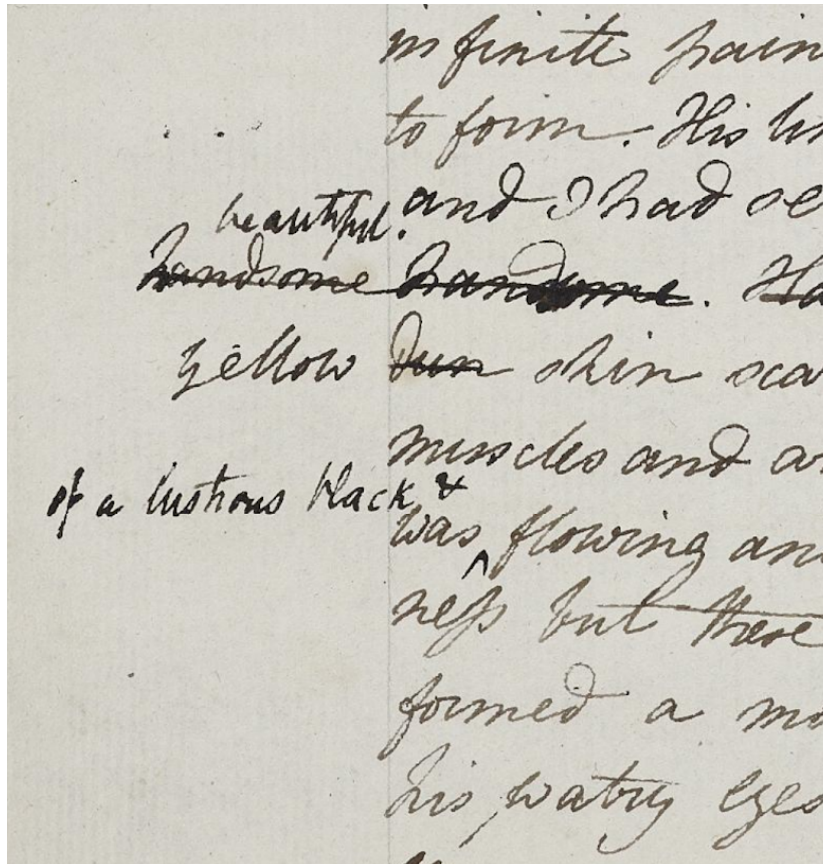 infinite pain
to form. His
beautiful. and I had se
handsome handsome. Ha
yellow dun skin sca
muscles and a
of a lustrous black &
was flowing an
ness but there
formed a mo
his watry eyes